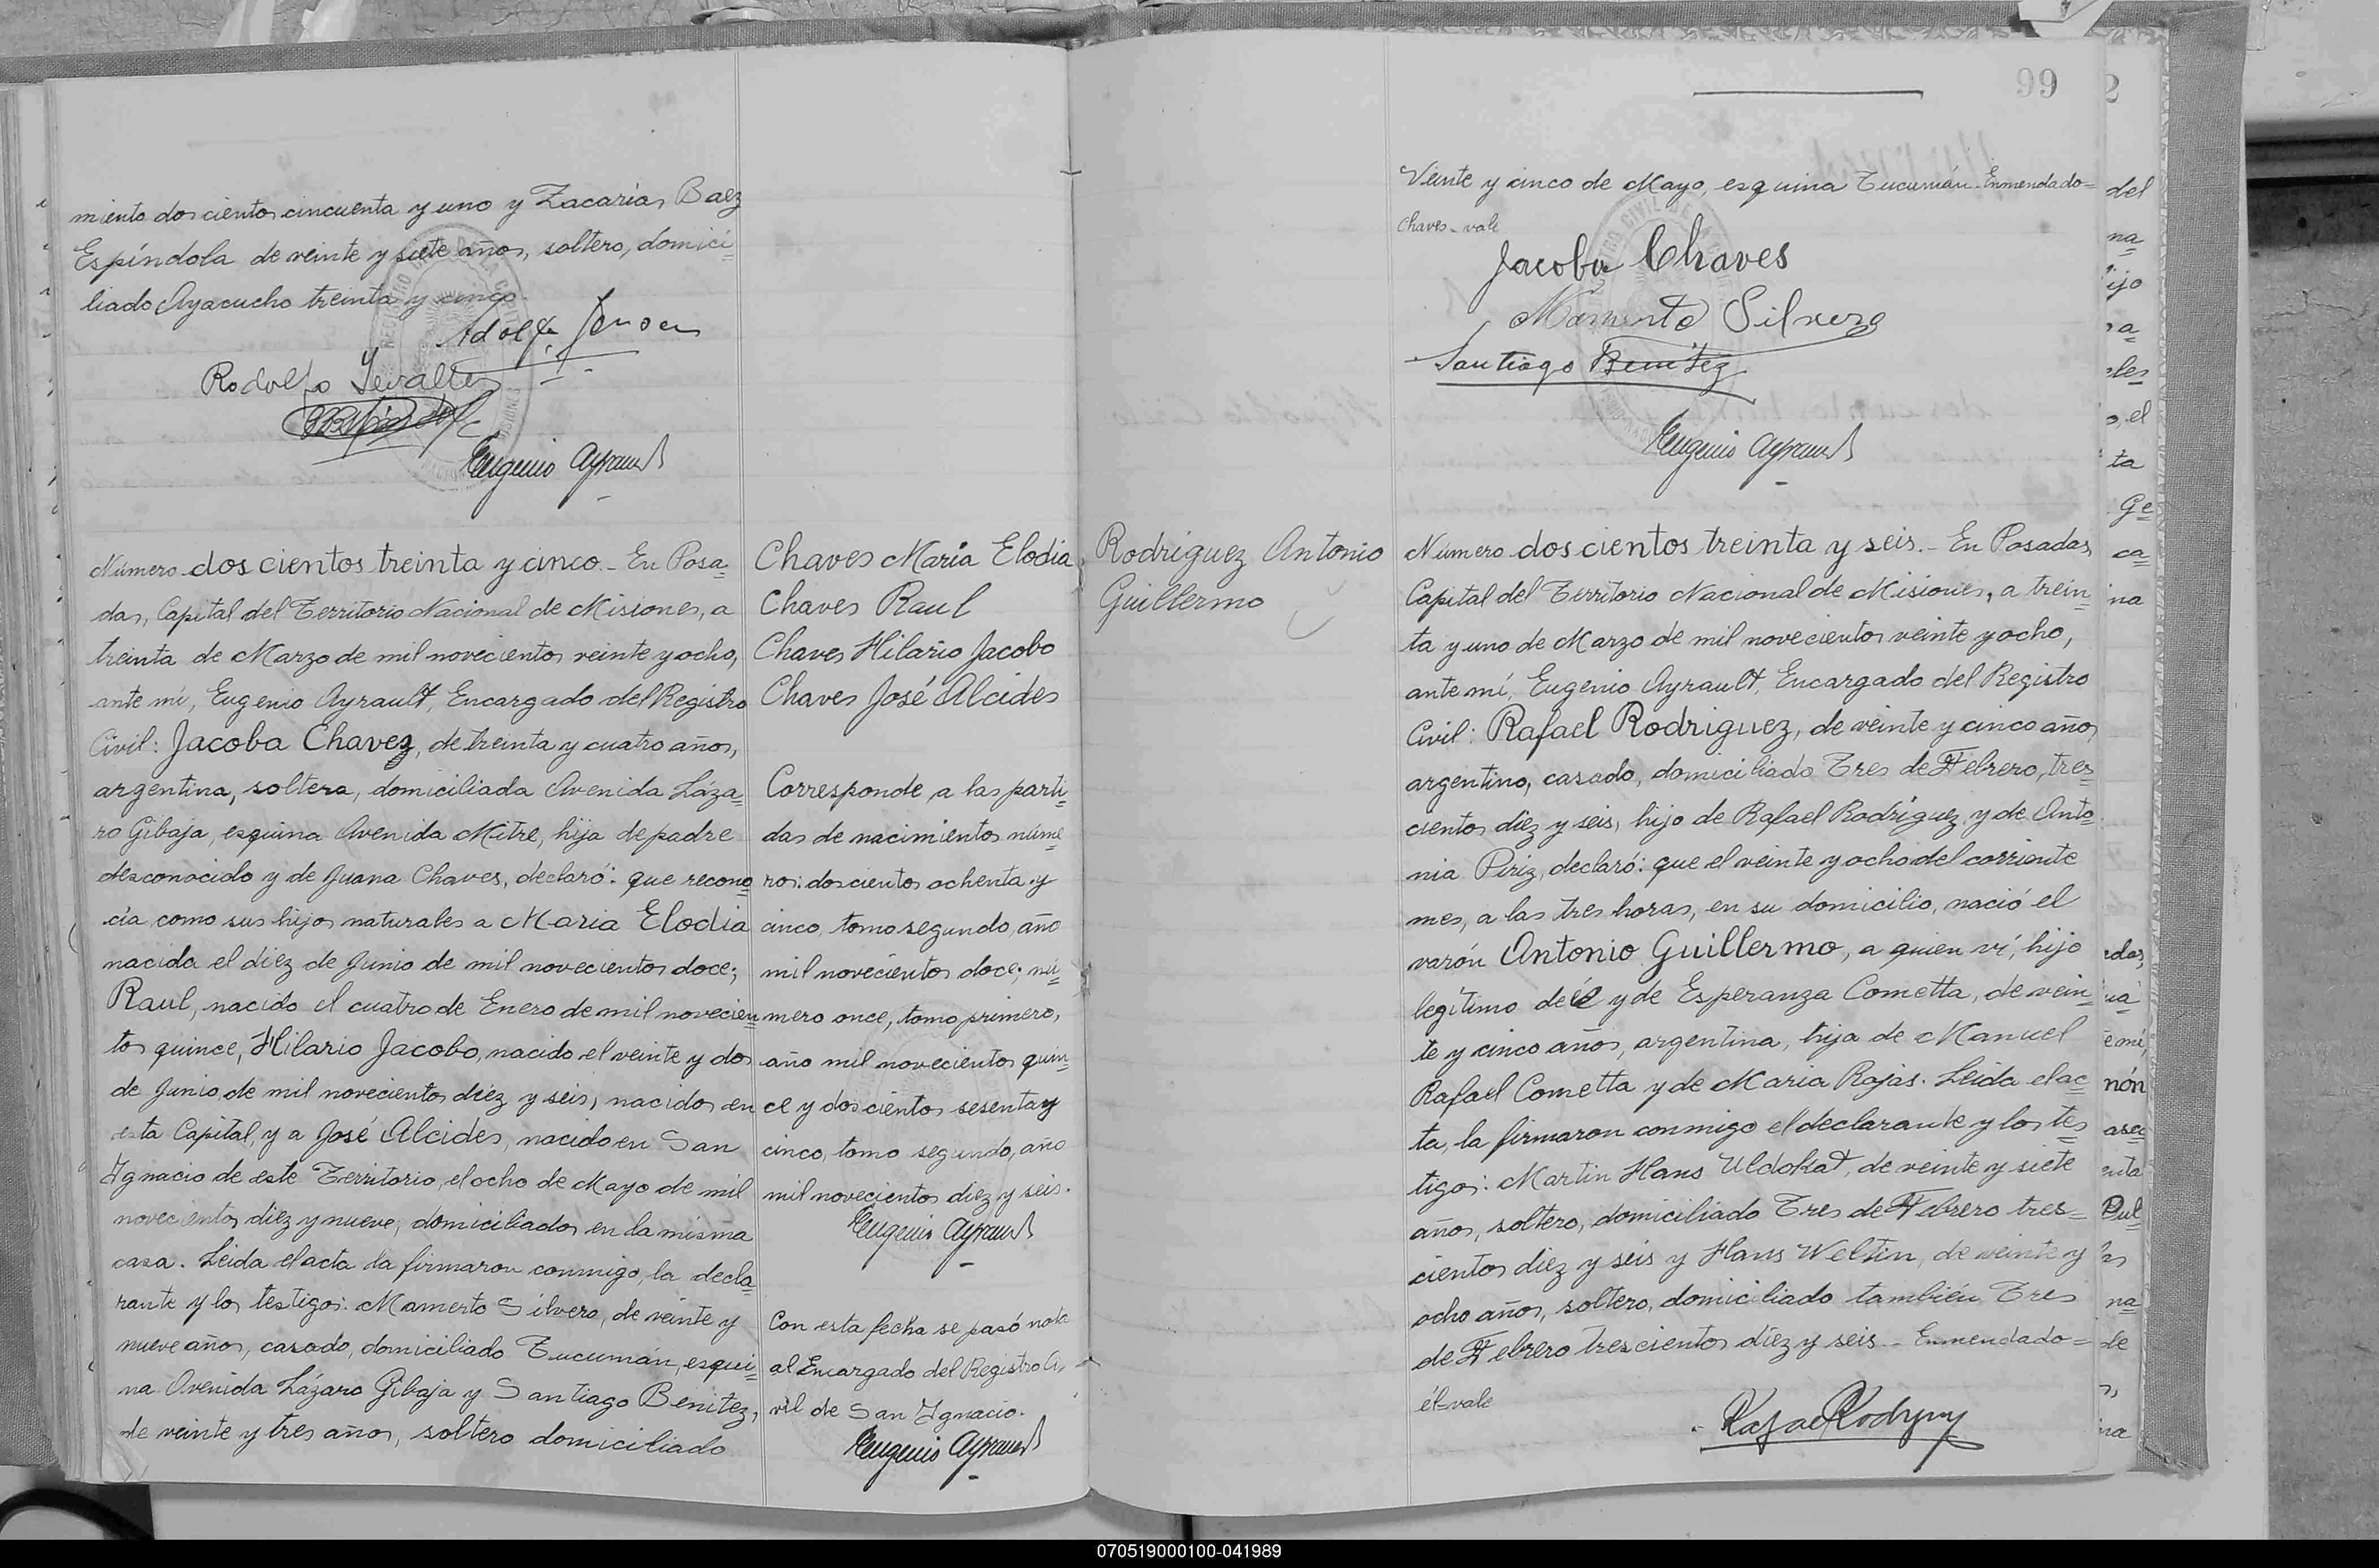 miento dos cientos cincuenta y uno y Zacarías Baez
Espíndola de veinte y siete años, soltero, domici=
liado Ayacucho treinta y cinco.
Rodolfo
Eugenio Ayrault
Número dos cientos treinta y cinco.- En Posa=
das, Capital del Territorio Nacional de Misiones, a
treinta de Marzo de mil novecientos veinte y ocho,
ante mí, Eugenio Ayrault, Encargado del Registro
Civil: Jacoba Chavez, de treinta y cuatro años,
argentina, soltera, domiciliada Avenida Láza=
ro Gibaja, esquina Avenida Mitre, hija de padre
desconocido y de Juana Chaves, declaró: que recono=
cía como sus hijos naturales a Maria Elodia
nacida el diez de Junio de mil novecientos doce;
Raul, nacido el cuatro de Enero de mil novecien=
tos quince, Hilario Jacobo, nacido el veinte y dos
de Junio de mil novecientos diez y seis, nacidos en
esta Capital, y a José Alcides, nacido en San
Ignacio de este Territorio, el ocho de Mayo de mil
novecientos diez y nueve, domiciliados en la misma
casa. Leida el acta la firmaron conmigo, la decla=
rante y los testigos: Mamerto Silvero, de veinte y
nueve años, casado, domiciliado Tucumán, esqui=
na Avenida Lázaro Gibaja y Santiago Benitez,
de veinte y tres años, soltero domiciliado
Chaves Maria Elodia
Chaves Raul
Chaves Hilario Jacobo
Chaves José Alcides
Corresponde a las parti=
das de nacimientos núme=
ros: dos cientos ochenta y
cinco, tomo segundo, año
mil novecientos doce; nú=
mero once, tomo primero,
año mil novecientos quin=
ce y dos cientos sesenta y
cinco, tomo segundo, año
mil novecientos diez y seis.
Eugenio Ayrault
Con esta fecha se pasó nota
al Encargado del Registro Ci=
vil de San Ignacio.
Eugenio Ayrault
99
Veinte y cinco de Mayo, esquina Tucumán. Enmendado=
Chaves=vale
Jacoba Chaves
Mamerto Silvero
Santiago Benitez
Eugenio Ayrault
Rodriguez Antonio
Guillermo
Número dos cientos treinta y seis.- En Posadas,
Capital del Territorio Nacional de Misiones, a trein=
ta y uno de Marzo de mil novecientos veinte y ocho,
ante mí, Eugenio Ayrault, Encargado del Registro
Civil: Rafael Rodriguez, de veinte y cinco años,
argentino, casado, domiciliado Tres de Febrero, tres=
cientos diez y seis, hijo de Rafael Rodríguez y de Anto=
nia Piriz, declaró: que el veinte y ocho del corriente
mes, a las tres horas, en su domicilio, nació el
varón Antonio Guillermo, a quien ví, hijo
legítimo de él y de Esperanza Cometta, de vein=
te y cinco años, argentina, hija de Manuel
Rafael Cometta y de Maria Rojas. Leida el ac=
ta, la firmaron conmigo el declarante y los tes=
tigos: Martin Hans Uldokat, de veinte y siete
años, soltero, domiciliado Tres de Febrero tres=
cientos diez y seis y Hans Weltin, de veinte y
ocho años, soltero, domiciliado también Tres
de Febrero trescientos diez y seis.- Enmendado=
él=vale
Rafael Rodriguez
070519000100-041989